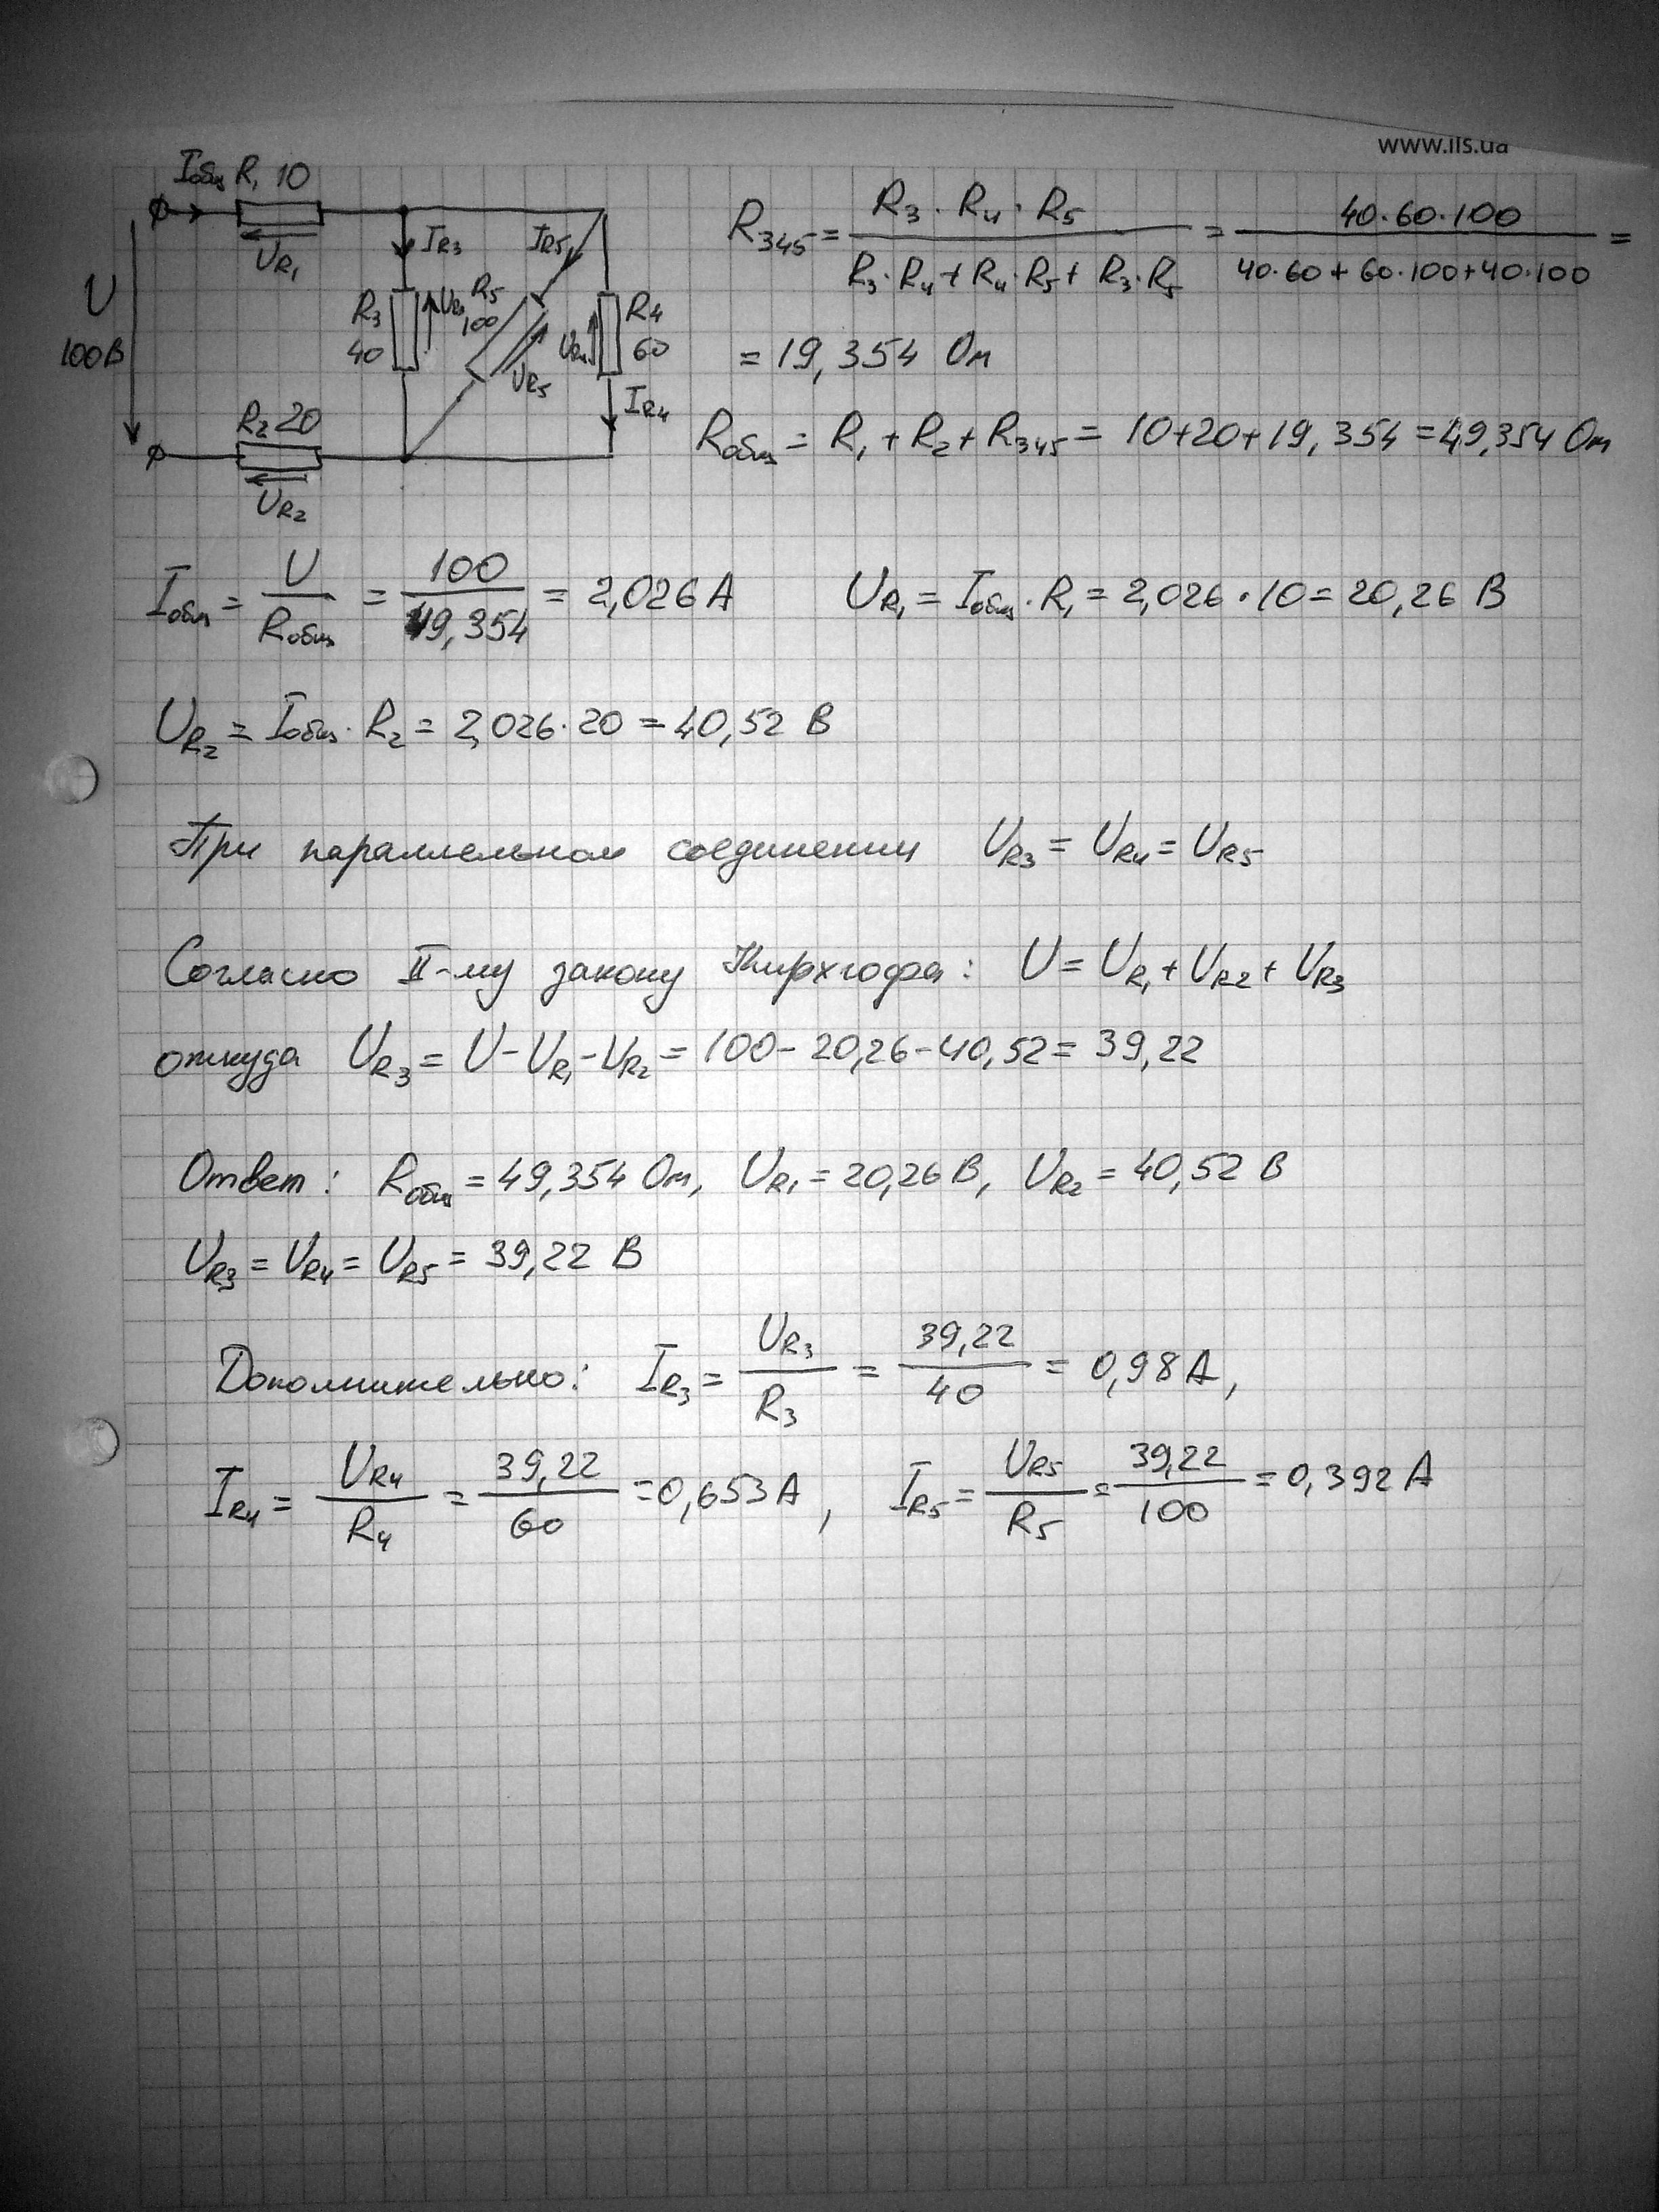 www.iis.ua
Iобщ R₁ 10
UR₁
IR3
IR5
U
100В
R3
40
UR3
R5
100
UR5
UR4
R4
60
IR4
R2 20
UR2
R345 = R3·R4·R5 / (R3·R4 + R4·R5 + R3·R5) = 40·60·100 / (40·60 + 60·100 + 40·100) =
= 19,354 Ом
Rобщ = R₁ + R₂ + R345 = 10+20+19,354 = 49,354 Ом
Iобщ = U / Rобщ = 100 / 49,354 = 2,026 А    UR₁ = Iобщ · R₁ = 2,026 · 10 = 20,26 В
UR₂ = Iобщ · R₂ = 2,026 · 20 = 40,52 В
При параллельном соединении UR3 = UR4 = UR5
Согласно II-му закону Кирхгофа: U = UR₁ + UR2 + UR3
откуда UR3 = U - UR₁ - UR2 = 100 - 20,26 - 40,52 = 39,22
Ответ: Rобщ = 49,354 Ом, UR₁ = 20,26 В, UR2 = 40,52 В
UR3 = UR4 = UR5 = 39,22 В
Дополнительно: IR3 = UR3 / R3 = 39,22 / 40 = 0,98 А,
IR4 = UR4 / R4 = 39,22 / 60 = 0,653 А, IR5 = UR5 / R5 = 39,22 / 100 = 0,392 А